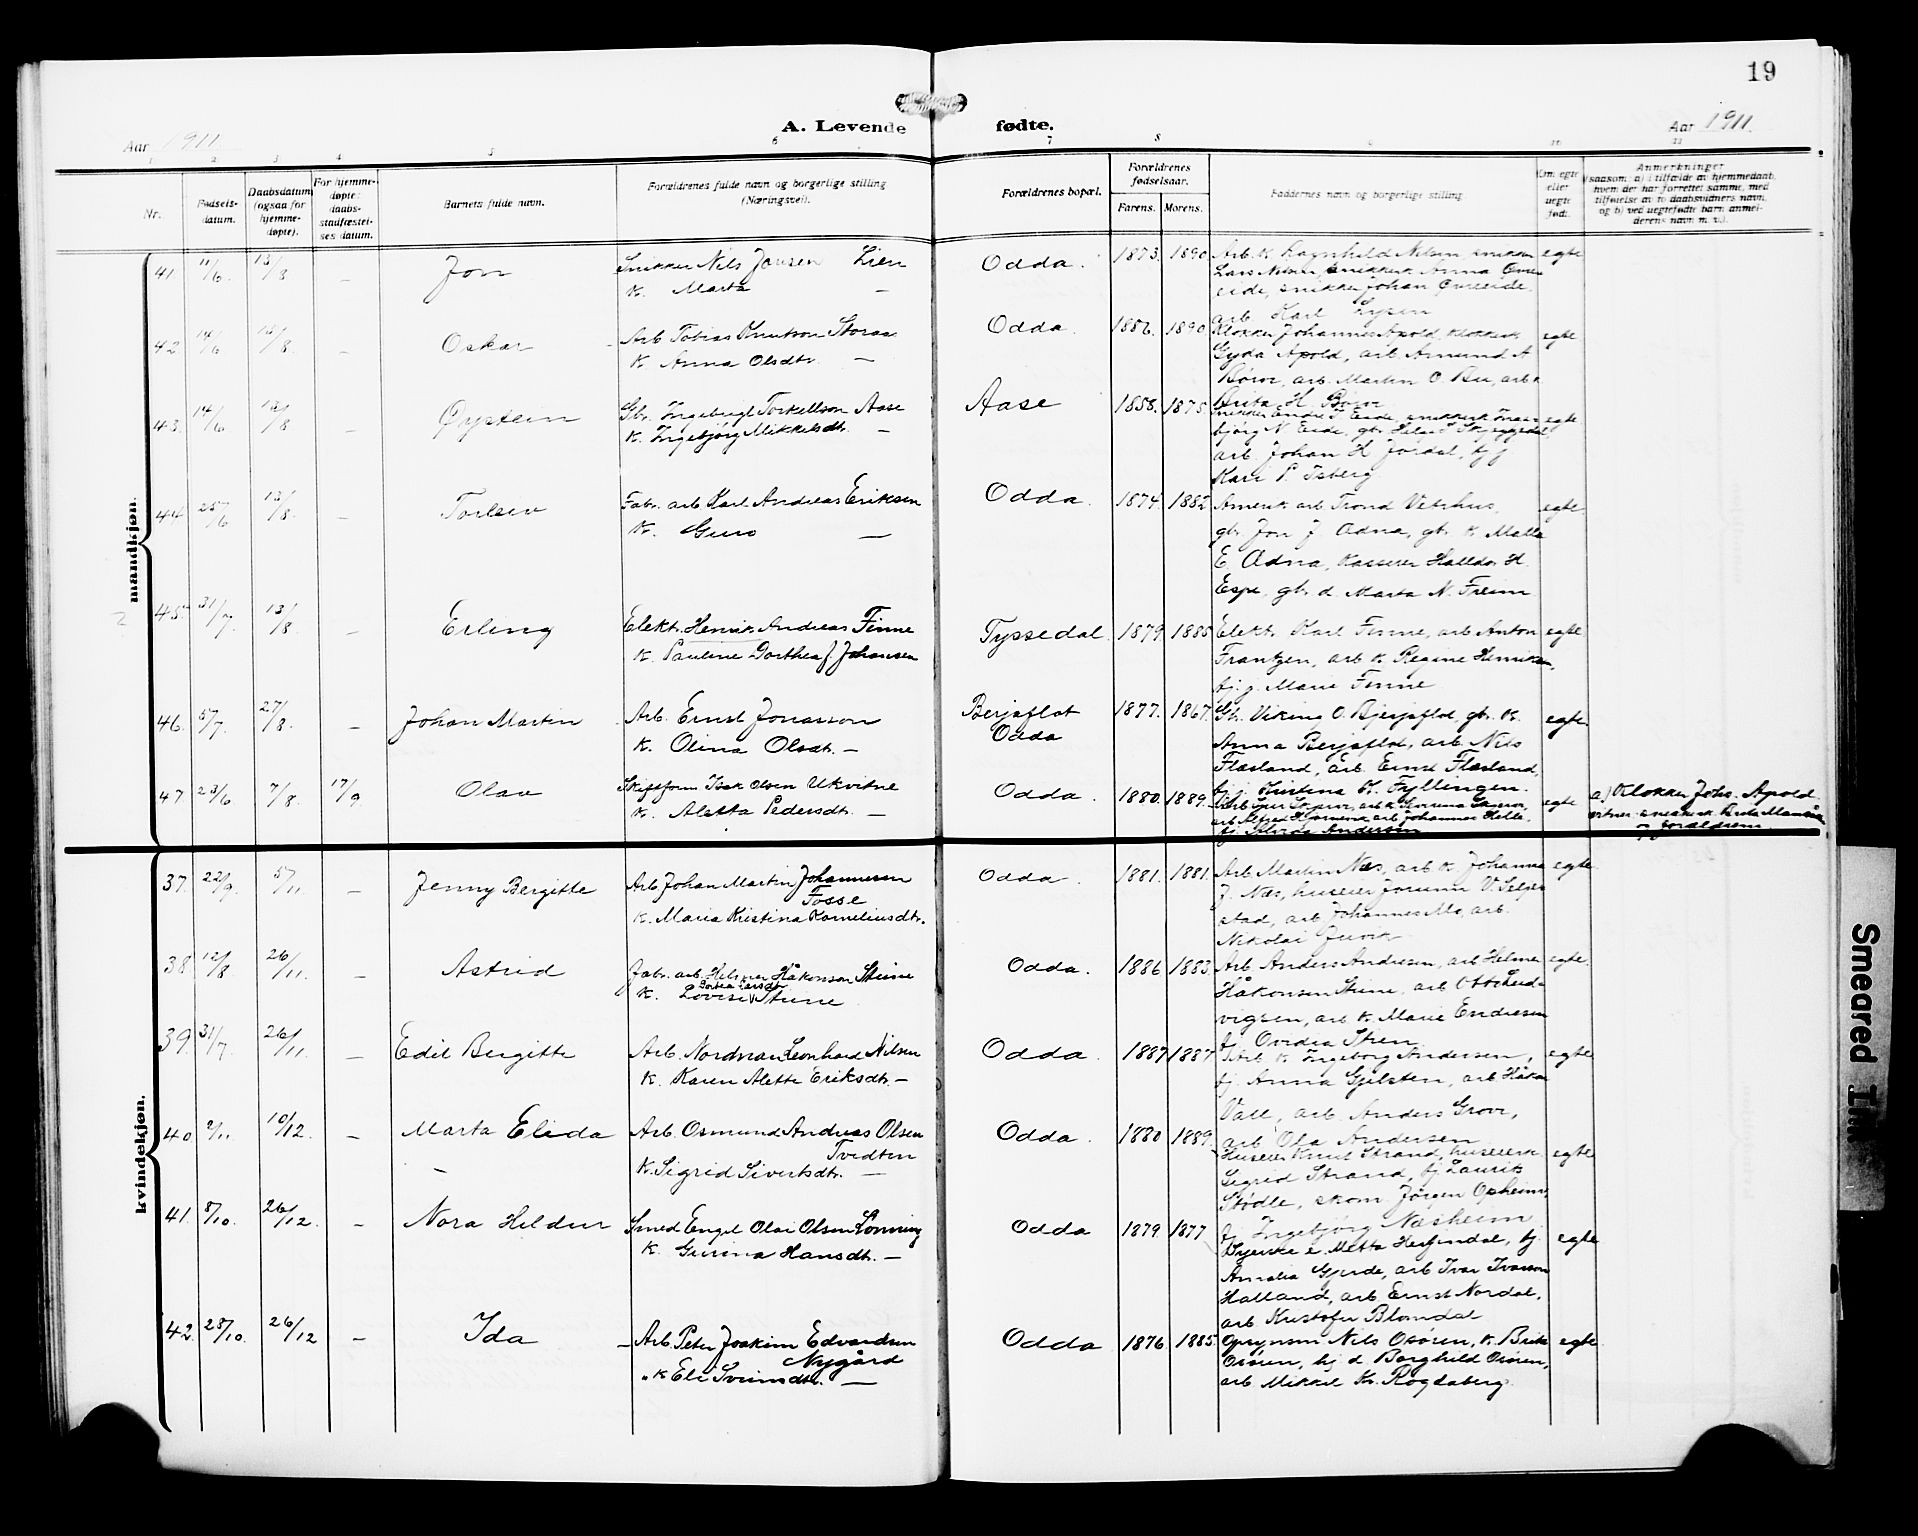 19
Aar 1911
A. Levende fødte.
Aar 1911.
1 2 3 4 5 6 7 8 9 10 11
Nr.
Fødsels-
datum.
Daabsdatum
(ogsaa for
hjemme-
døpte).
For hjemme-
døpte:
daabs-
stadfæstel-
ses datum.
Barnets fulde navn.
Forældrenes fulde navn og borgerlige stilling
(Næringsvei).
Forældrenes bopæl.
Forældrenes
fødselsaar.
Farens. Morens.
Faddernes navn og borgerlige stilling
Om egte
eller
uegte
født.
Anmerkninger
saasom: a) i tilfælde av hjemmedaab,
hvem der har forrettet samme, med
tilføielse av to daabsvidners navn,
og b) ved uegtefødte barn anmel-
derens navn m. v.).
mandkjøn.
41. 11/6. 13/8 – Jon
Snikker Nils Jonsen Lien
K. Marta –
Odda. 1873. 1890
Arb. k. Ragnhild Nilsen, snikker
Lars Nilsen, snikkerk Anna Øvre
eide, snikker Johan Øvreeide.
arb Karl Lysen
egte
42. 14/6 13/8. – Oskar
Arb Tobias Knutson Storaa
K. Anna Olsdtr. –
Odda. 1886. 1890
Klokker Johannes Apold, klokkerk
Gyda Apold, arb Amund A
Børve, arb. Martin O. Bu, arb k
Brita H. Børve
egte
43. 14/6 13/8 – Øystein
Gbr. Ingebrigt Torkellson Aase
K. Ingebjørg Mikkelsdtr. –
Aase 1858. 1875
Snikker Endre T. Eide, snikkerk Inge-
bjørg N. Eide, gbr. Helge Skjeggedal,
arb. Johan H Jordal, bj j
Kari P. Isberg
egte
44 25/6 13/8. – Torleiv
Fabr. arb Karl Andreas Eriksen
K. Guro –
Odda. 1874. 1882
Amerik arb Trond Vetrhus,
gbr Jon J. Adna, gbr. k Malla
E. Adna, kasserer Halldor H.
Espe, gbr. d. Marta N. Freim
egte.
45 31/7. 13/8 – Erling
Elektr. Henrik Andreas Finne
K. Pauline Dorthea f. Johansen
Tyssedal. 1879. 1885
Elektr. Karl Finne, arb Anton
Frantzen, arb k Regine Henriksen,
bj. j. Marie Finne
egte
46. 5/7. 27/8. – Johan Martin
Arb. Ernst Jonasson
K. Olina Olsdtr. –
Berjaflot
Odda
1877. 1867.
Gbr. Viking O. Bjerjaflot, gbr. k.
Anna Berjaflot, arb. Nils
Flæsland, arb. Ernst Flæsland,
bj. j Kristina K. Fyllingen.
egte.
47 23/6 7/8. 17/9. Olav
Skipsform Isak Olsen Utvitne
K. Aletta Pedersdtr. –
Odda. 1880. 1889.
egte
a) Klokker Johs. Apold
kvindekjøn.
37. 22/9. 5/11. – Jenny Bergitte
Arb Johan Martin Johannesen
Fosse
K. Maria Kristina Korneliusdtr.
Odda 1881. 1881.
Arb Martin Næs, arb k. Johanna
J. Næs, huseier Jorunn V. Seljes
stad, arb Johannes Mo, arb.
Nikolai Juvik
egte
38 12/8 26/11. – Astrid
Fabr. arb. Helmer Håkonson Stene
K. Lovise Dortea Larsdtr Stene
Odda. 1886 1883.
Arb Anders Andresen, arb Helmer
Håkonsen Stene, arb Otto Lud-
vigsen, arb k. Marie Endresen
bj Ovidia Stren
egte.
39. 31/7. 26/11. – Edil Bergitte
Arb. Nordman Leonhard Nilsen
K. Karen Alette Eriksdtr. –
Odda. 1887 1887
Arb k Ingeborg Andersen,
bj. Anna Gjilsten, arb Håkon
Vall, arb. Anders Grove,
arb Ola Andersen
egte
40. 2/11. 10/12. – Marta Elida
Arb. Osmund Andreas Olsen
Tvedten
K. Sigrid Sivertsdtr. –
Odda. 1880 1889.
Huseier Knut Strand, huseierk
Sigrid Strand, bj Laurits
Stødle, skom. Jørgen Opheim,
bj Ingebjørg Næsheim
egte
41. 8/10. 26/12. – Nora Heldur
Smed Engel Olai Olsen Lønning
K. Gurina Hansdtr. –
Odda 1879 1877
Syerske e. Metta Hesjendal, bj.
Amalia Gjerde, arb Ivar Ivarson
Halland, arb Ernst Nordal,
arb Kristofer Blomdal
egte
42. 28/10. 26/12 – Ida
Arb. Peter Joakim Edvardsen
Nygård
" K Eli Sveinsdtr. –
Odda 1876 1885.
Opsynsm Nils Osøren, k. Brita
Osøren, bj d. Borghild Osøren,
arb Mikkel Kr. Rogdaberg.
egte
Smeared Ink